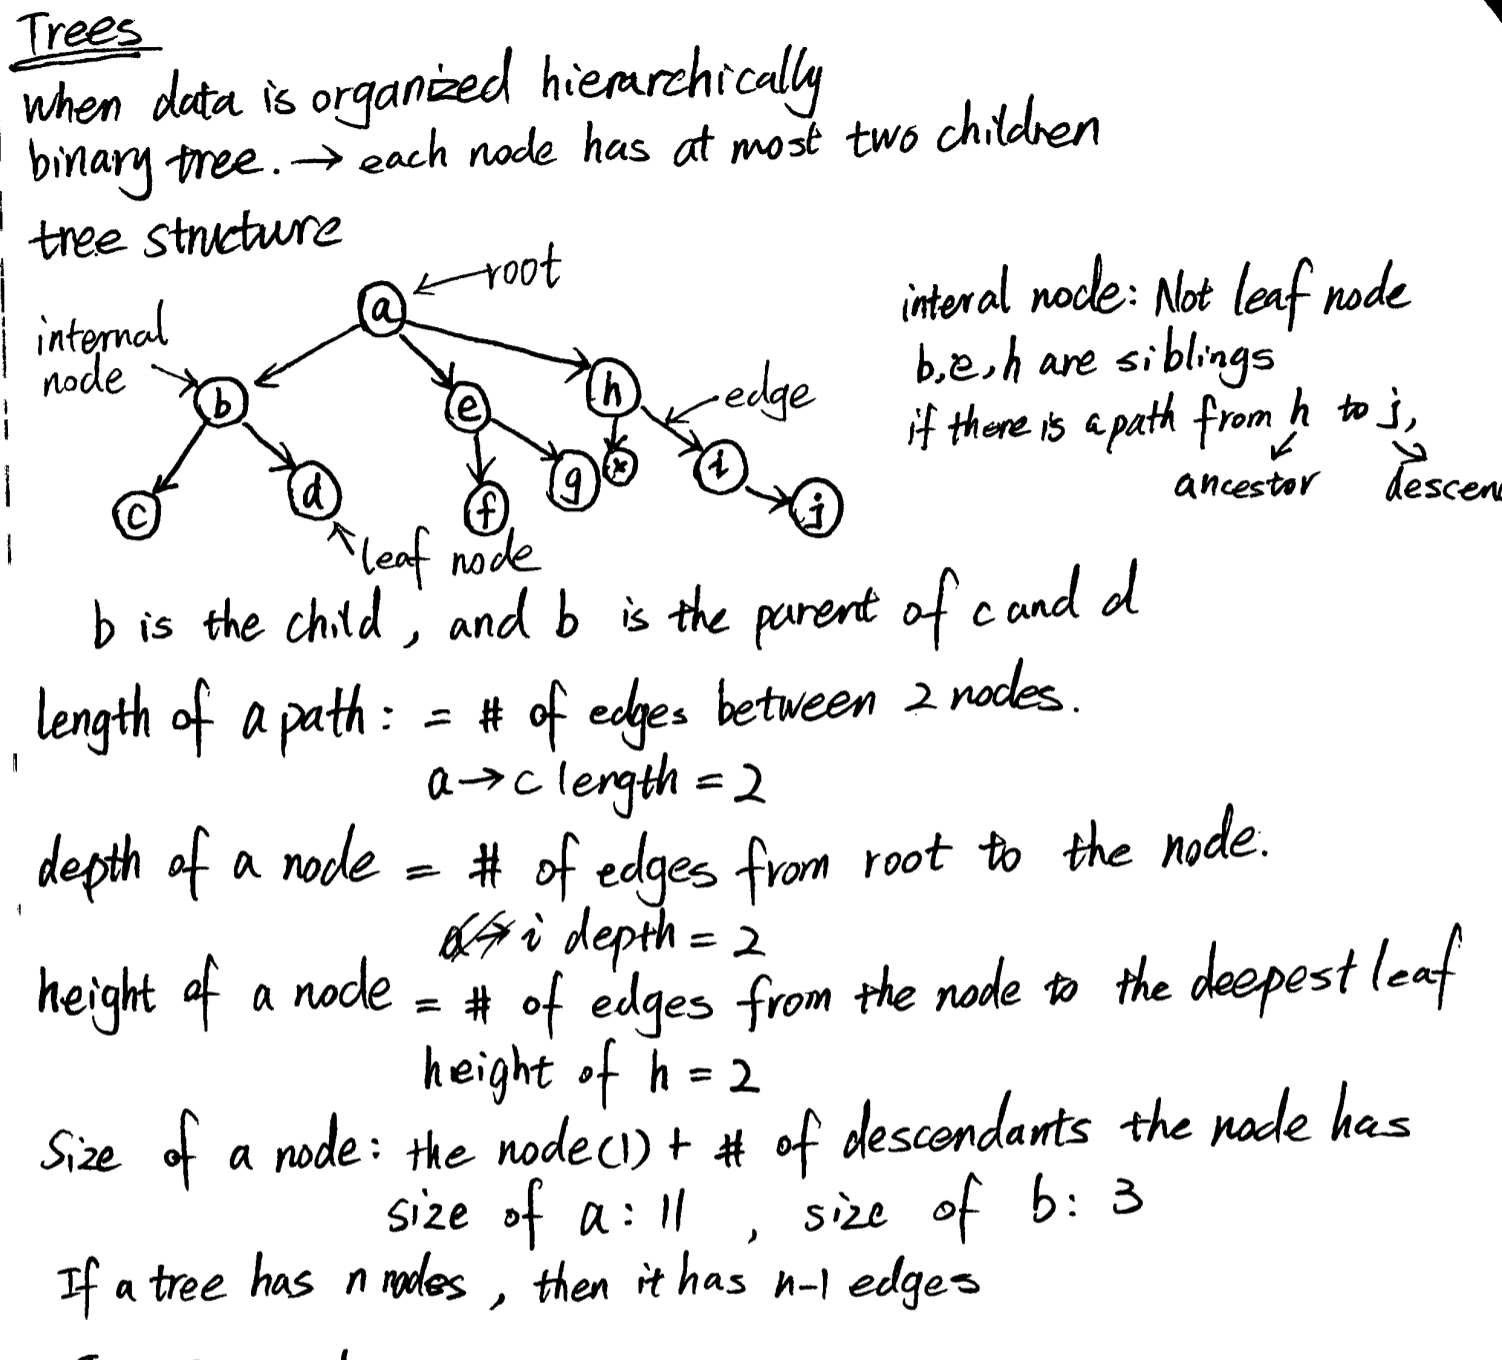 Trees
when data is organized hierarchically
binary tree. → each node has at most two children
tree structure
root
a
internal
node
b
e
h
edge
c
d
f
g
x
i
j
leaf node
interal node: Not leaf node
b,e,h are siblings
if there is a path from h to j,
ancestor descen
b is the child, and b is the parent of c and d
length of a path: = # of edges between 2 nodes.
a→c length = 2
depth of a node = # of edges from root to the node.
i depth = 2
height of a node = # of edges from the node to the deepest leaf
height of h = 2
Size of a node: the node(1) + # of descendants the node has
size of a: 11 , size of b: 3
If a tree has n nodes, then it has n-1 edges